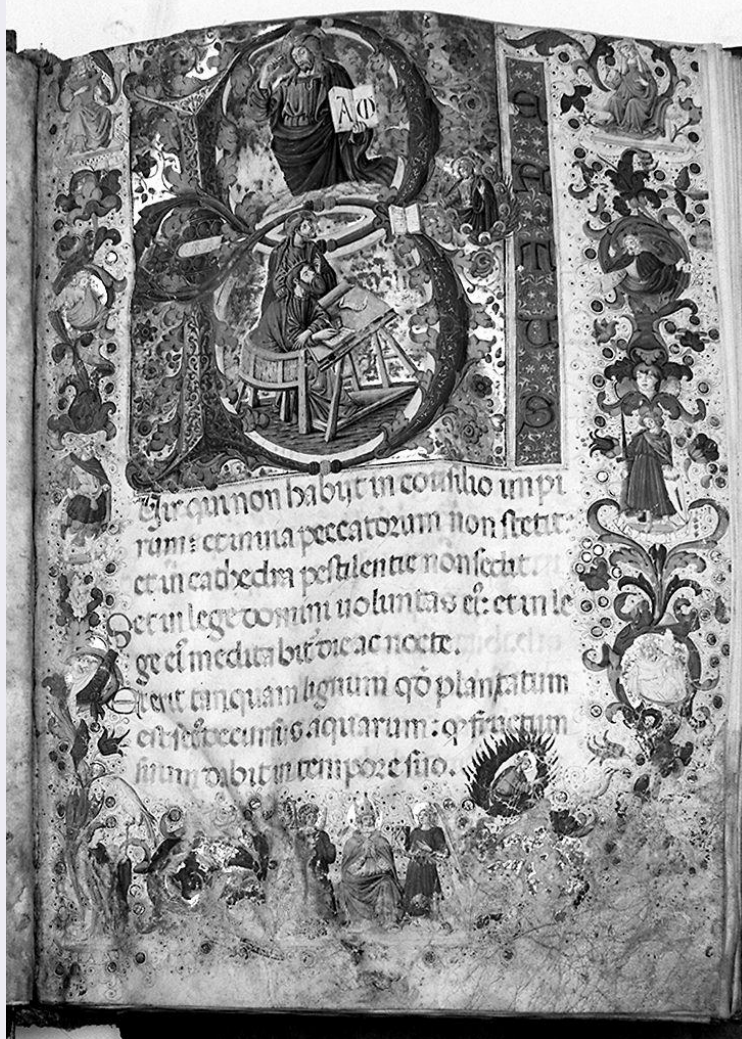 A ω
B
E
A
T
U
S
Uir qui non habijt in consilio impi
rum: et in uia peccatorum non stetit:
et in cathedra pestilentie nōn sedit
Set in lege domini uoluntas eiꝰ: et in le
ge eiꝰ meditabit᷑ die ac nocte.
Et erit tanquam lignum qđ plantatum
est decursus aquarum: ꝙ fructum
suum dabit in tempore suo.